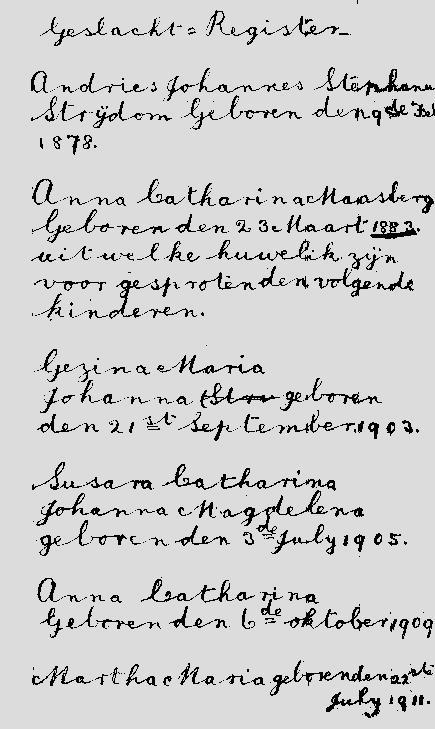 Geslacht = Register
Andries Johannes Stephanu
Strijdom Geboren den 9de Feb
1878.
Anna Catharina Mansberg
Geboren den 23 Maart 1883.
uit welke huwelik zijn
voor gesproten den volgende
kinderen.
Gezina Maria
Johanna geboren
den 21st September 1903.
Susara Catharina
Johanna Magdelena
geboren den 3de July 1905.
Anna Catharina
Geboren den 6de oktober 1909
Martha Maria geboren den 22ste
July 1911.